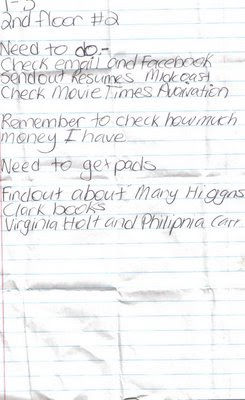 1-5
2nd floor #2
Need to do-
Check email and Facebook
Sendout Resumes Midcoast
Check Movie Times
Remember to check how much
money I have
Need to get pads
Findout about Mary Higgins
Clark books
Virginia Holt and Philipnia Carr